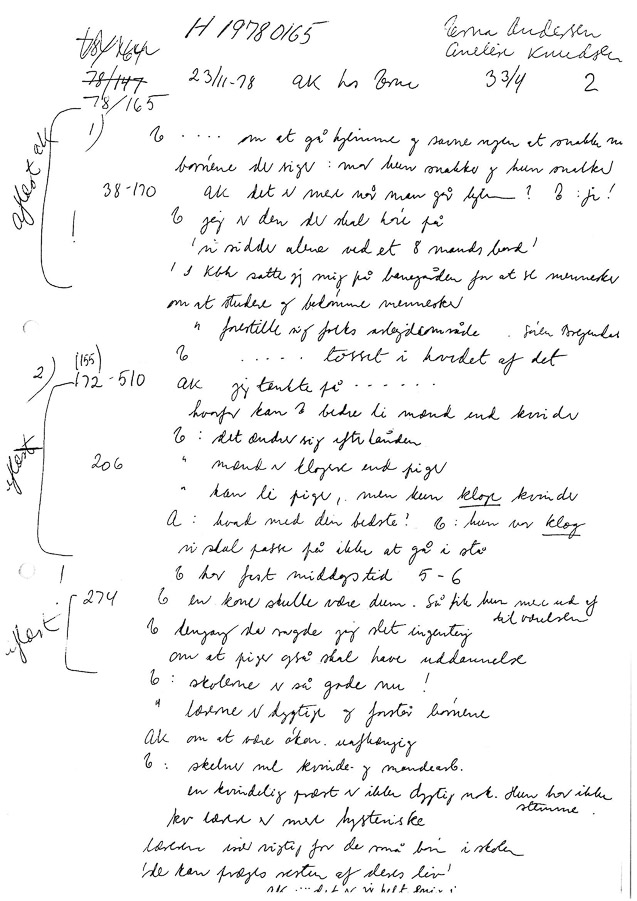 H 19780165
Erna Andersen
Anelise Knudsen
78/164
78/147
78/165
23/11-78 AK hos Erna 33/4 2
aflæst AK
1) E .... om at gå hjemme og savne nogen at snakke m
børnene de siger: mor hun snakker og hun snakker
38-170 AK det er mere når man går hjem ? E: ja!
! E jeg er den der skal høre på
'vi sidder alene ved et 8 mands bord'
'I Kbh satte jeg mig på banegården for at se mennesker
om at studere og bedømme mennesker
" forestille sig folks arbejdsområde. Søren
E ..... tosset i hovedet af det
2) (155)
172-510 AK jeg tænkte på ......
hvorfor kan E bedre li mænd end kvinder
aflæst
E: det ændrer sig efter
206 " mænd er klogere end piger
" kan li piger, men kun kloge kvinder
A: hvad med din bedste? E: hun var klog
vi skal passe på ikke at gå i stå
! E har fast middagstid 5-6
aflæst
274 E en kone skulle være dum. Så fik hun mere ud af
tilværelsen
E dengang da sagde jeg slet ingenting
om at piger også skal have uddannelse
E: skolerne er så gode nu!
" lærerne er dygtige og forstår børnene
AK om at være økon. uafhængig
E: skelner ml kvinde- og mandearb.
en kvindelig præst er ikke dygtig nok. Hun har ikke
stemme.
kv lærere er mere hysteriske
læreren især vigtig for de små børn i skolen
'de kan præges resten af deres liv'